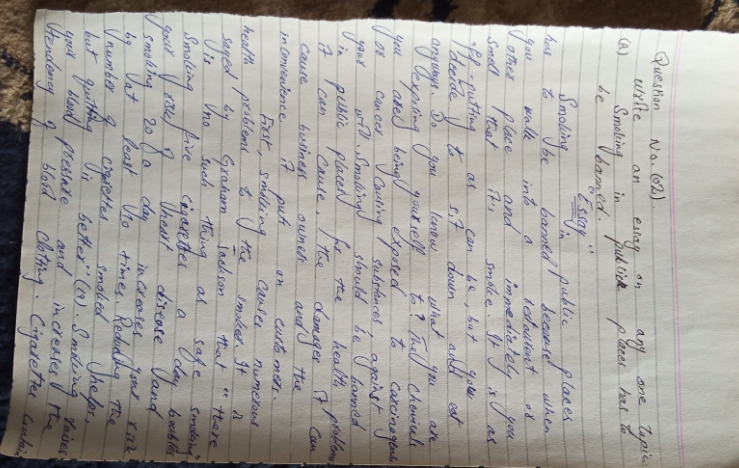 Question No.(02).
write an essay on any one topic
(a) Smoking in publick places has to
be banned.
"Essay"
Smoking in public places
has to be banned because when
you walk into a restaurant or
other place and immediately you
smell that it is smoke. It is as
off-putting as can be, but you
decide to sit down and eat
anyways. Do you know what you are
exposing yourself to? The chemicals
you are being exposed to carcinogens
or cancer causing substances, against
your will. Smoking should be banned
in public places for the health problem
it can cause, the damages it can
cause business owner and the
inconvenience it put on customer.
First, smoking causes numerous
health problems to the smoker. It is
sayed by Graham Jackson that "there
is no such thing as safe smoking"
Smoking five cigarettes a day doubles
your risk of heart disease and
smoking 20 a day increases your risk
by at least 10 times. Reducing the
number of cigarettes smoked helps,
but quitting is better". Smoking raises
your blood pressure and increases the
tendency of blood clotting. Cigarettes contain